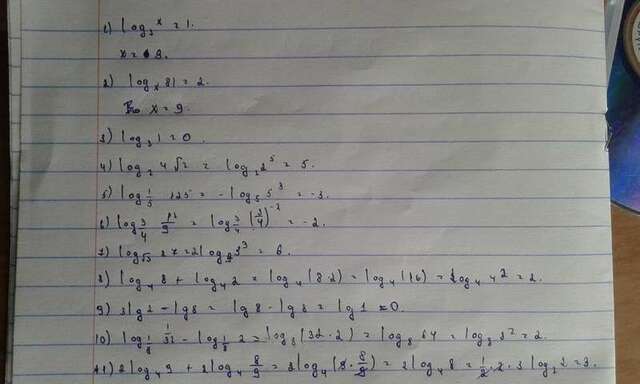 1) log₃ x = 1.
x = 3.
2) logₓ 81 = 2.
x = 9.
3) log₃ 1 = 0.
4) log₂ 4√2 = log₂ 2⁵ = 5.
5) log_{1/5} 125 = -log₅ 5³ = -3.
6) log_{3/4} 16/9 = log_{3/4} (3/4)⁻² = -2.
7) log_{√3} 27 = 2 log₃ 3³ = 6.
8) log₄ 8 + log₄ 2 = log₄ (8·2) = log₄ (16) = log₄ 4² = 2.
9) 3lg2 - lg8 = lg8 - lg8 = lg1 = 0.
10) log_{1/8} 1/32 - log_{1/8} 2 = log₈ (32·2) = log₈ 64 = log₈ 8² = 2.
11) 2log₄ 9 + 2log₄ 8/9 = 2log₄ (9·8/9) = 2log₄ 8 = 1/2·2·3 log₂ 2 = 3.